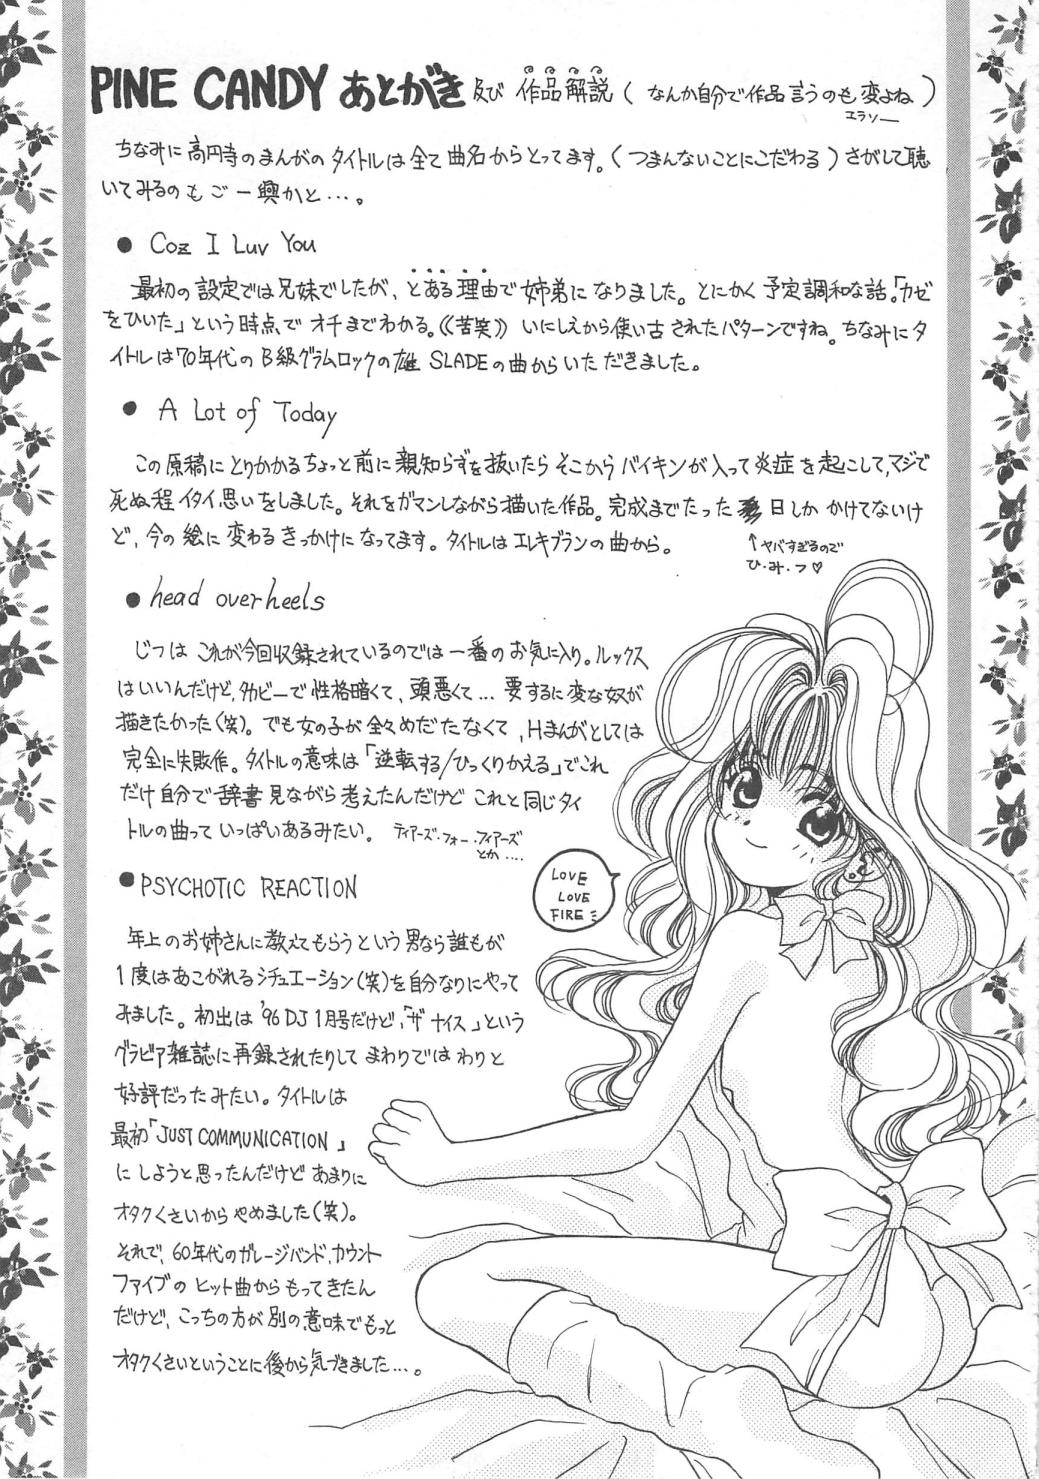 PINE CANDY あとがき 及び 作品解説 ( なんか自分で作品言うのも変よね )
エラソー
ちなみに高円寺のまんがのタイトルは全て曲名からとってます。(つまんないことにこだわる) さがして聴
いてみるのもご一興かと…。
● Coz I Luv You
最初の設定では兄妹でしたが、とある理由で姉弟になりました。とにかく予定調和な話。「カゼ
をひいた」という時点でオチまでわかる。《苦笑》いにしえから使い古されたパターンですね。ちなみにタ
イトルは70年代のB級グラムロックの雄 SLADEの曲からいただきました。
● A Lot of Today
この原稿にとりかかるちょっと前に親知らずを抜いたらそこからバイキンが入って炎症を起こして、マジで
死ぬ程イタイ思いをしました。それをガマンしながら描いた作品。完成までたった 日しかかけてないけ
ど、今の絵に変わるきっかけになってます。タイトルはエレキブランの曲から。
↑ヤバすぎるので
ひ・み・つ♡
● head over heels
じつはこれが今回収録されているのでは一番のお気に入り。ルックス
はいいんだけど、タカビーで性格暗くて、頭悪くて…要するに変な奴が
描きたかった(笑)。でも女の子が全々めだたなくて、Hまんがとしては
完全に失敗作。タイトルの意味は「逆転する/ひっくりかえる」でこれ
だけ自分で辞書見ながら考えたんだけどこれと同じタイ
トルの曲っていっぱいあるみたい。 ティアーズ・フォー・フィアーズ
とか....
LOVE
LOVE
FIRE
● PSYCHOTIC REACTION
年上のお姉さんに教えてもらうという男なら誰もが
1度はあこがれるシチュエーション(笑)を自分なりにやって
みました。初出は'96 DJ 1月号だけど、「ザ ナイス」という
グラビア雑誌に再録されたりしてまわりではわりと
好評だったみたい。タイトルは
最初「JUST COMMUNICATION」
にしようと思ったんだけどあまりに
オタクくさいからやめました(笑)。
それで、60年代のガレージバンド、カウント
ファイブのヒット曲からもってきたん
だけど、こっちの方が別の意味でもっと
オタクくさいということに後から気づきました…。